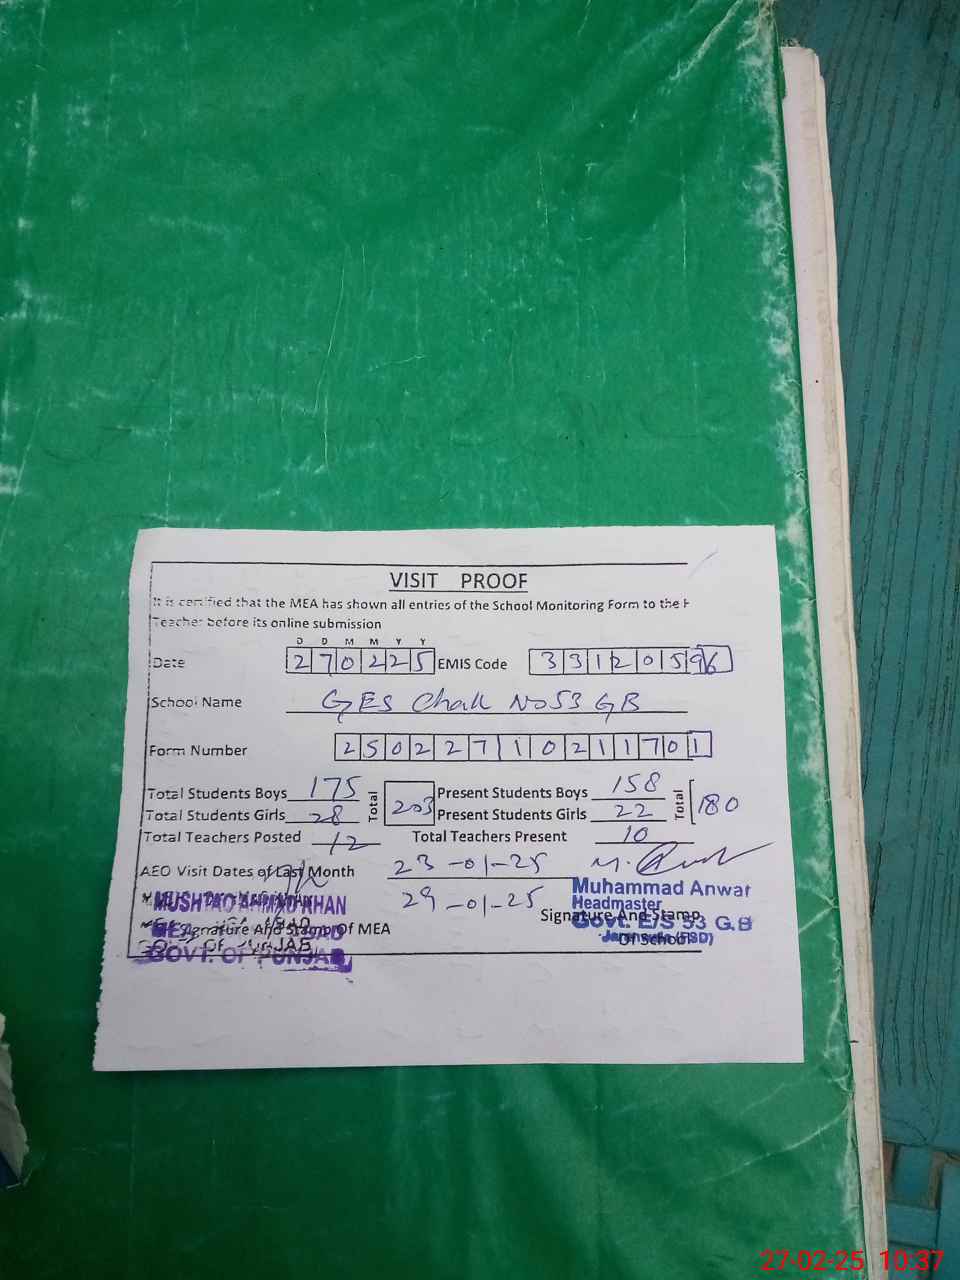 VISIT PROOF
It is certified that the MEA has shown all entries of the School Monitoring Form to the H
Teacher before its online submission
D D M M Y Y
Date 270225 EMIS Code 331205
School Name GES Chak No 53 GB
Form Number 25022710211701
Total Students Boys 175 Total 203 Present Students Boys 158 Total 180
Total Students Girls 28 Present Students Girls 22
Total Teachers Posted 12 Total Teachers Present 10
AEO Visit Dates of Last Month 23-01-25
29-01-25
MUSHTAQ AHMAD KHAN
Signature And Stamp Of MEA
GOVT. OF PUNJAB
Muhammad Anwar
Headmaster
Signature And Stamp
Govt. E/S 53 G.B
Of School
(FSD)
27-02-25 10:37